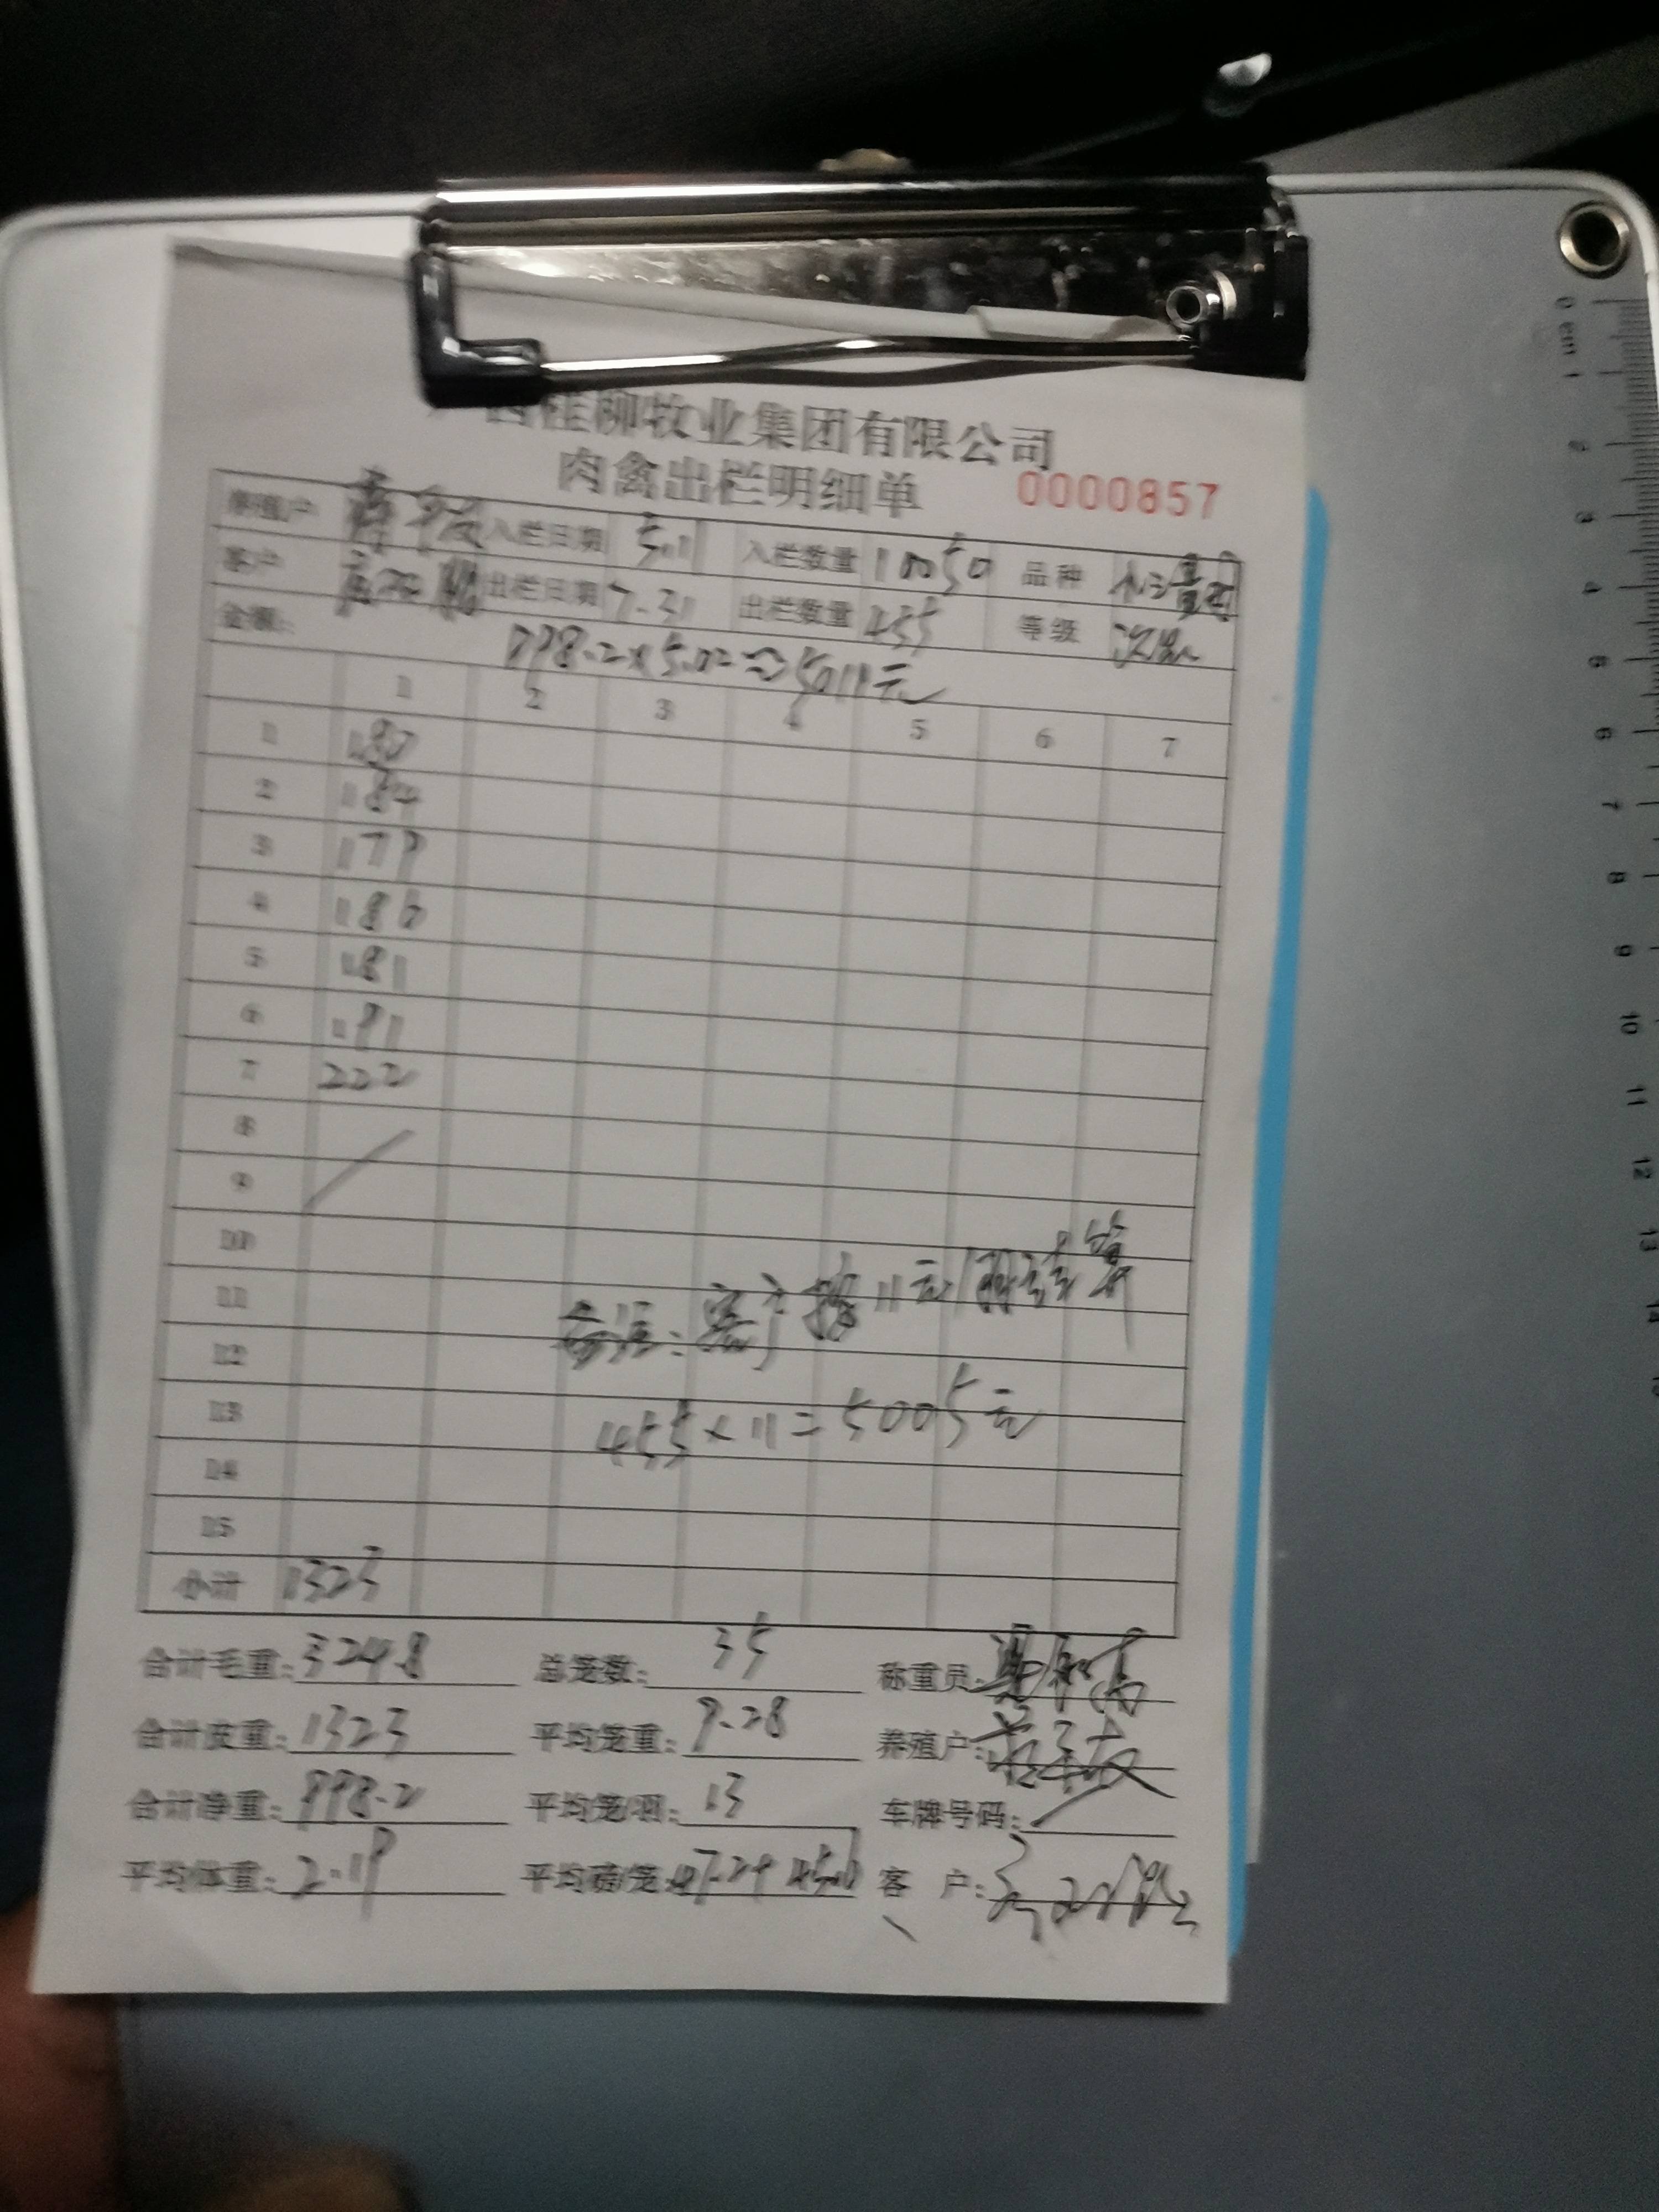 西桂柳牧业集团有限公司
肉禽出栏明细单 0000857
养殖户 入栏日期 5.11 入栏数量 10050 品种
客户 出栏日期 7.31 出栏数量 455 等级 次品
金额: 998.2×5.02=5011元
1 2 3 4 5 6 7
1
2 184
3 179
4
5 181
6 191
7 222
8
9
10
11
12
13
14
15
备注:客户按11元/羽结算
455×11=5005元
小计 1323
合计毛重: 总笼数: 35 称重员:
合计皮重: 1323 平均笼重: 9.28 养殖户:
合计净重: 998.2 平均笼/羽: 13 车牌号码:
平均体重: 2.19 平均磅/笼: 客 户:
0 cm 1 2 3 4 5 6 7 8 9 10 11 12 13 14